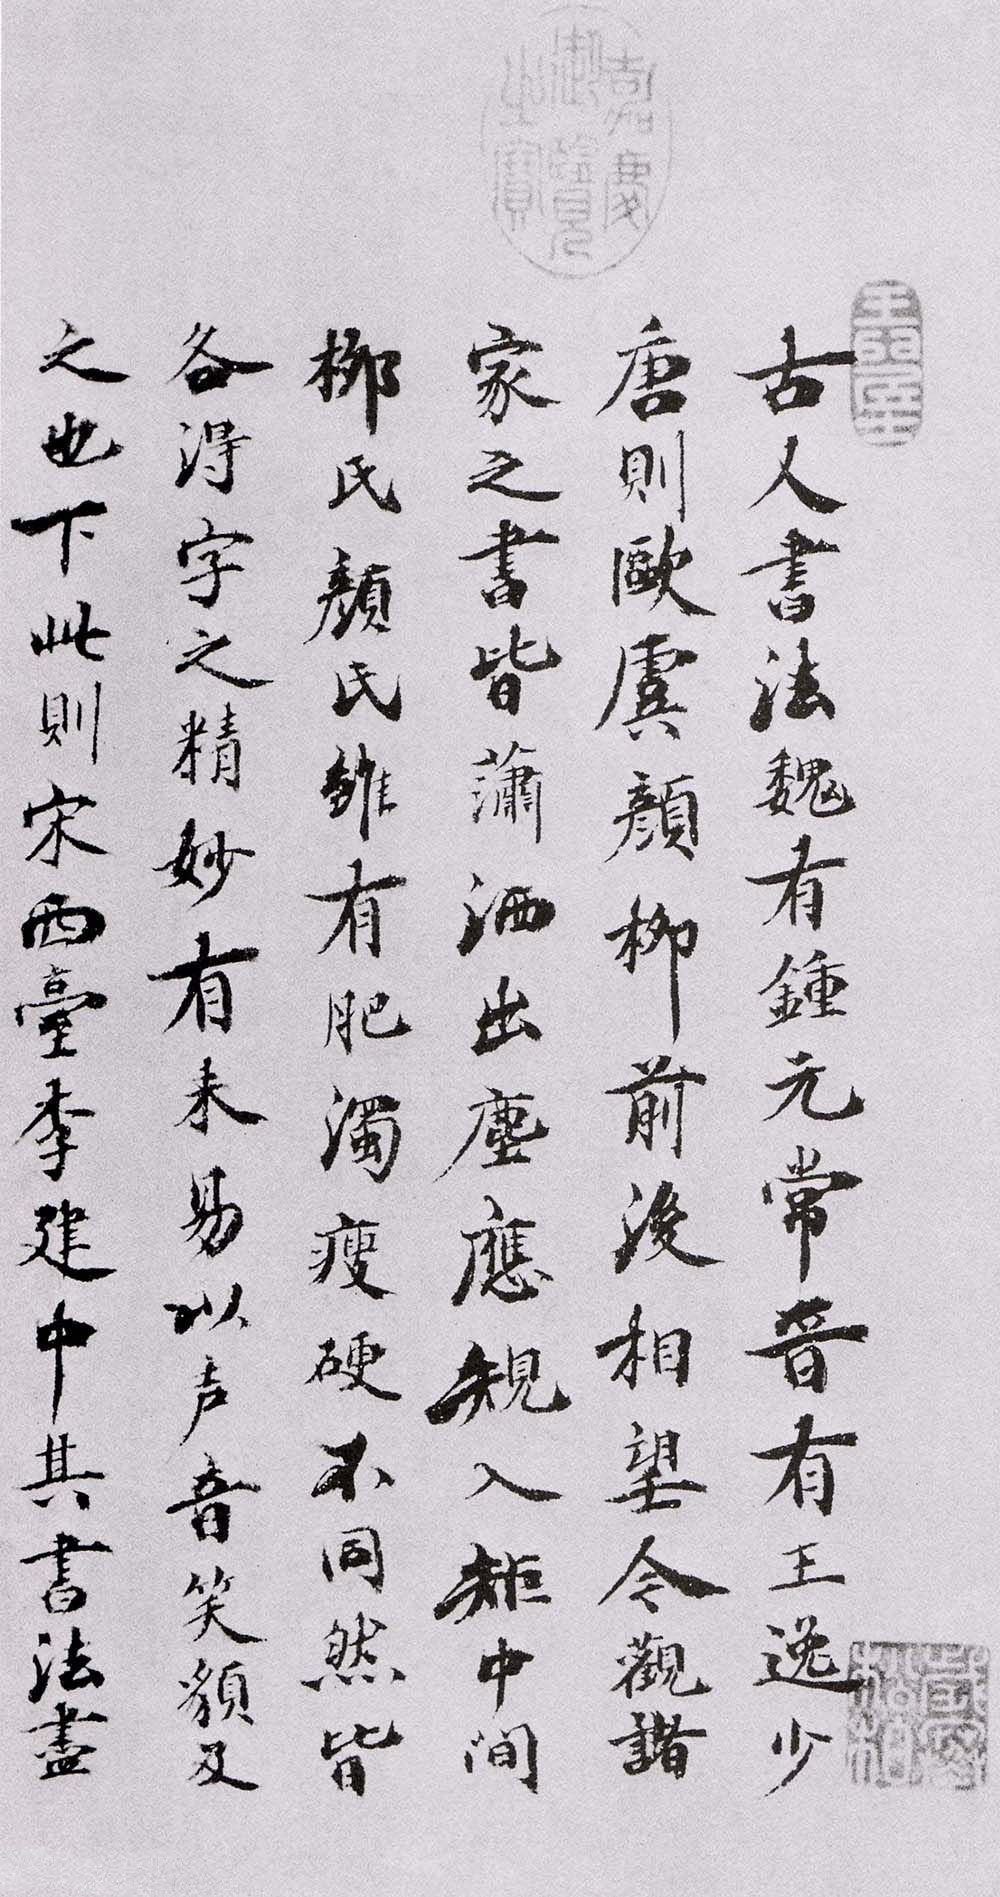 古人書法魏有鍾元常晉有王逸少
唐則歐虞顏柳前後相望令觀諸
家之書皆蕭洒出塵應規入矩中間
柳氏顏氏雖有肥濁瘦硬不同然皆
各得字之精妙有未易以声音笑貌及
之也下此則宋西臺李建中其書法盡
嘉慶
御覽
之寶